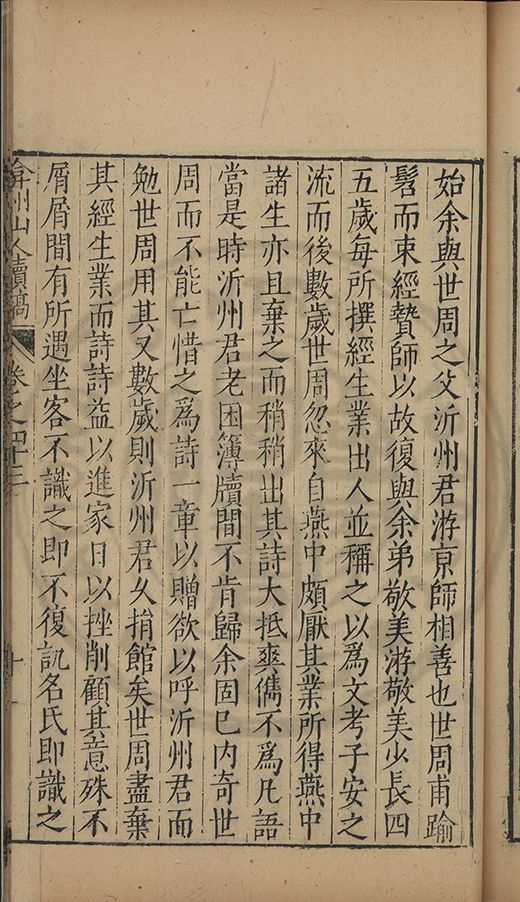 始余與世周之父沂州君游京師相善也世周甫踰
髫而束經贄師以故復與余弟敬美游敬美少長四
五歲每所撰經生業出人並稱之以爲文考子安之
流而後數歲世周忽來自燕中頗厭其業所得燕中
諸生亦且棄之而稍稍出其詩大抵爽儁不爲凡語
當是時沂州君老困簿牘間不肯歸余固已内奇世
周而不能亡惜之爲詩一章以贈欲以呼沂州君而
勉世周用其又數歲則沂州君久捐館矣世周盡棄
其經生業而詩詩益以進家日以挫削顧其意殊不
屑屑間有所遇坐客不識之即不復訊名氏即識之
弇州山人續稿 卷之四十三 十